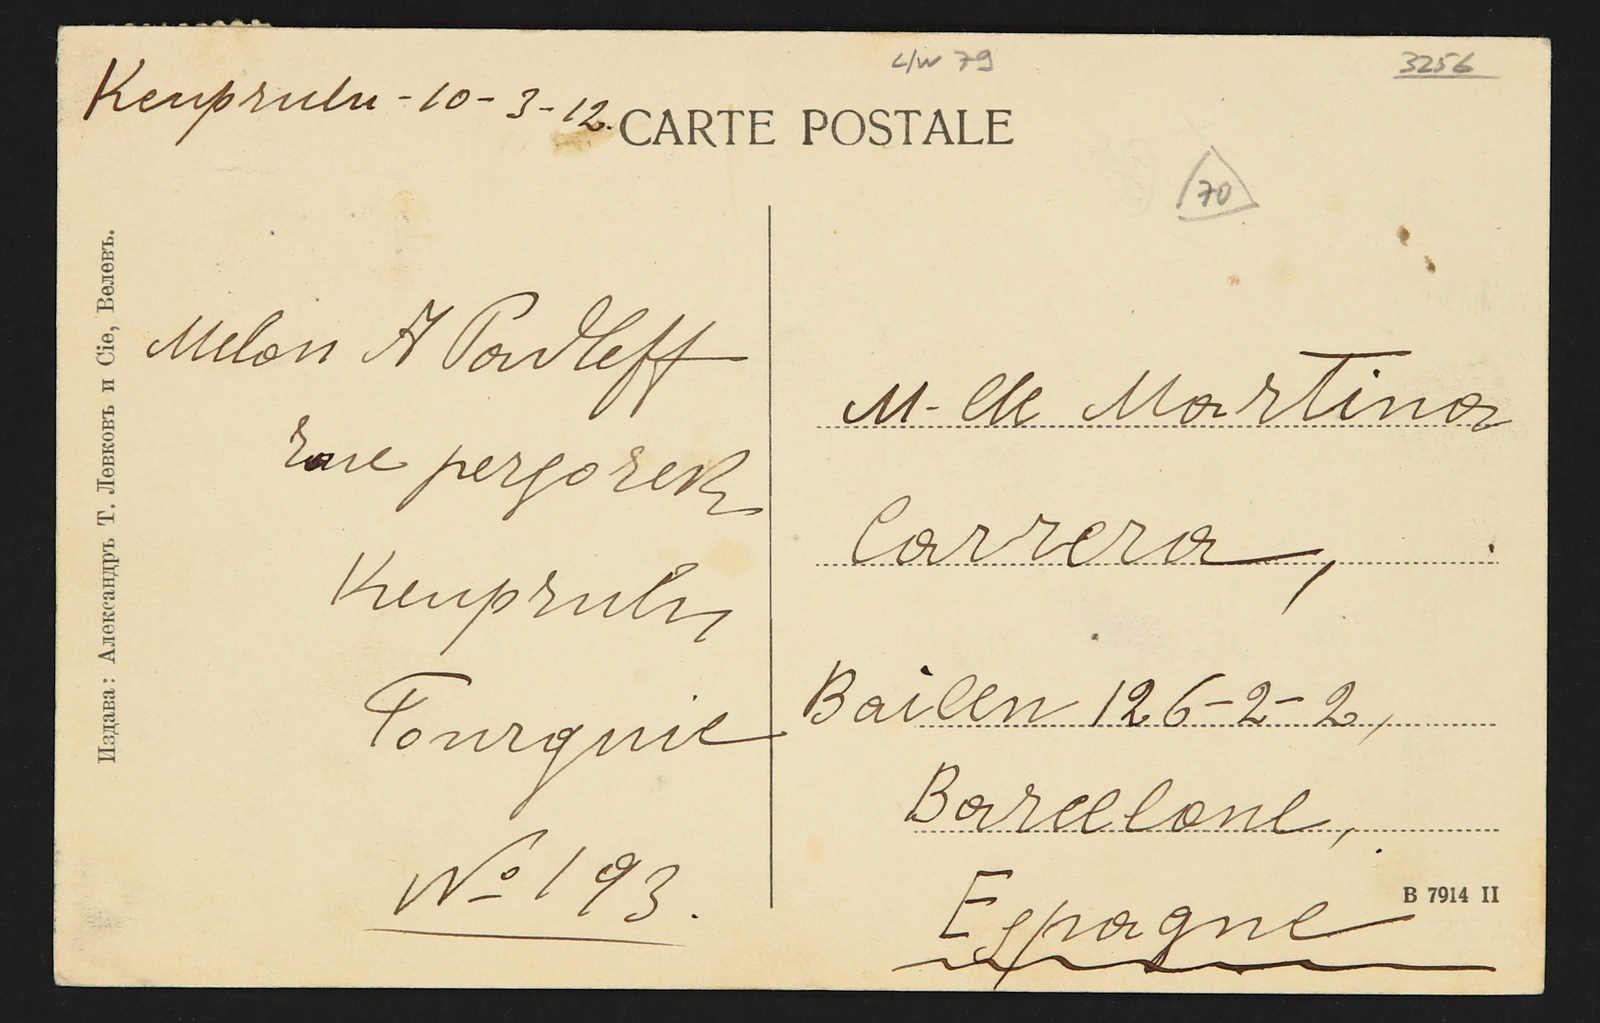 c/w 79
3256
Keuprulu - 10 - 3 - 12.
CARTE POSTALE
70
Издава: Александръ Т. Левковъ и Cie, Велевъ.
Milan A Pavleff
rue pergorek
Keuprulu
Tourquie
No 193.
M. de Martina
Carrera,
Bailen 126-2-2,
Barcelone,
Espagne
B 7914 II